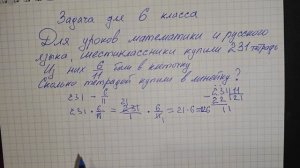 Задача для 6 класса
Для уроков математики и русского
языка, шестиклассники купили 231 тетрадь
Из них 6/11 были в клетку
Сколько тетрадей купили в линейку?
231 - 6/11
231 · 6/11 = 231/1 · 6/11 = 21·6=126
- 231 11
22 21
11